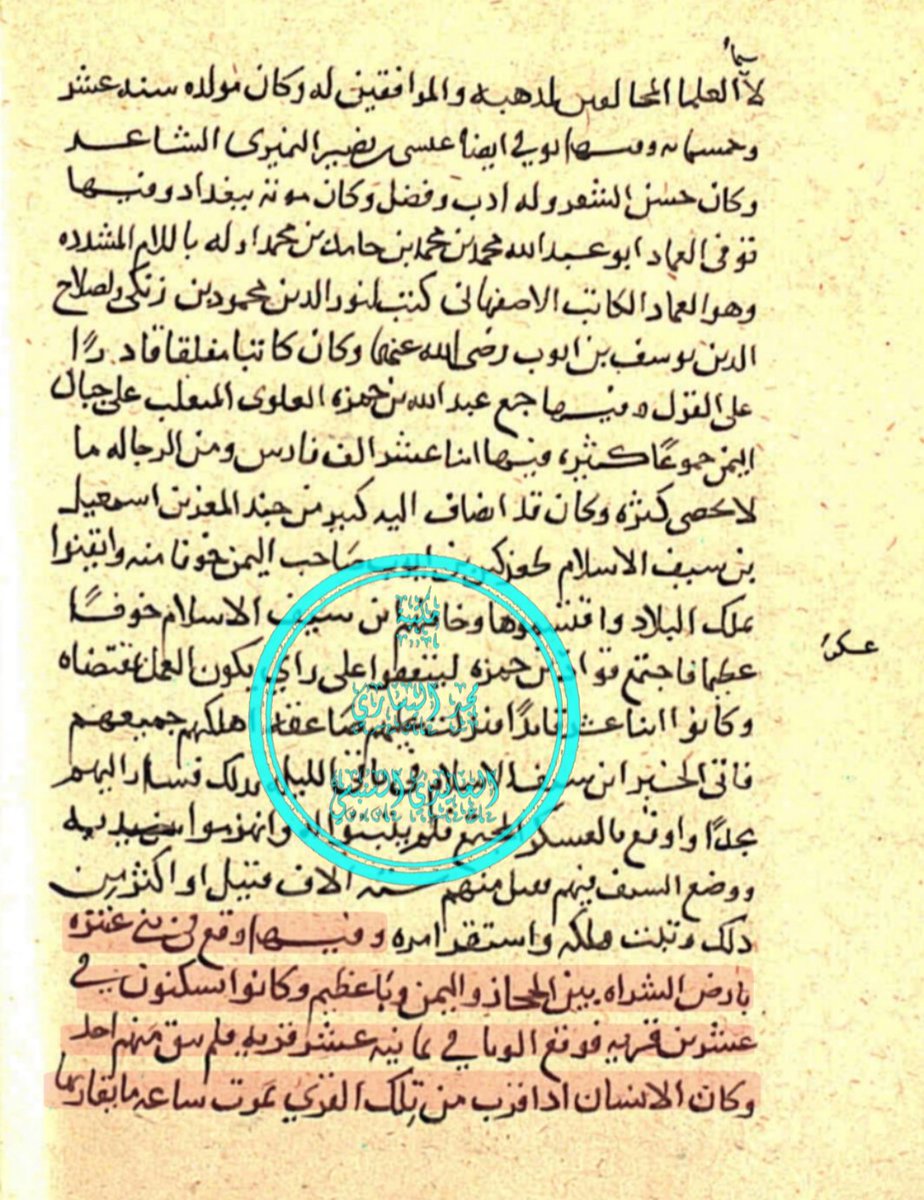 سيما
لا العلما المخالفين لمذهبه والموافقين له وكان مولده سنه عشر
وخمسمايه وفيها توفي ايضا عيسى بن نصير النميرى الشاعر
وكان حسن الشعر وله ادب وفضل وكان موته ببغداد وفيها
توفى العماد ابو عبد الله محمد بن محمد بن حامد بن محمد اوله باللام المشدده
وهو العماد الكاتب الاصفهانى كتب لنور الدين محمود بن زنكى ولصلاح
الدين يوسف بن ايوب رضى الله عنهما وكان كاتبا مفلقا قادرًا
على القول وفيها جمع عبد الله بن حمزه العلوى المتغلب على جبال
اليمن جموعًا كثيره فيها اثنا عشر الف فارس ومن الرجاله ما
لا يحصى كثرة وكان قد انضاف اليه كبير من جند المعز بن اسمعيل
بن سيف الاسلام طغزكين بن ايوب صاحب اليمن خوفا منه وايقنوا
بملك البلاد واقتسموها وخافهم ابن سيف الاسلام خوفًا
عظيما فاجتمع قواد ابن حمزه ليتفقوا على راي يكون العمل بمقتضاه
عسكر
وكانوا اثنا عشر قايدًا فنزلت عليهم صاعقه اهلكتهم جميعهم
فاتى الخبر ابن سيف الاسلام في باقي الليله بذلك فسار اليهم
مجدًا واوقع بالعسكر المجتمع فلم يثبتوا له وانهزموا بين يديه
ووضع السيف فيهم فقتل منهم سته الاف قتيل او اكثر من
ذلك وثبت ملكه واستقر امره وفيها وقع في بني عنزه
بارض الشراه بين الحجاز واليمن وبا عظيم وكانوا يسكنون في
عشرين قريه فوقع الوبا في ثمانيه عشر قريه فلم يبق منهم احد
وكان الانسان اذا قرب من تلك القرى يموت ساعه ما يقاربها
مكتبة
محمد البقاري